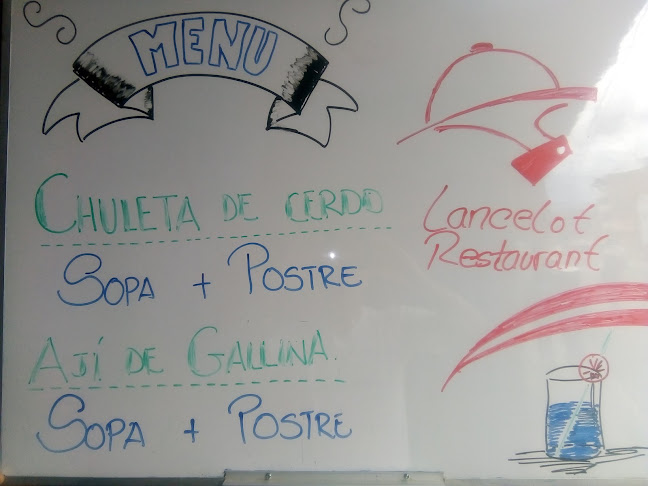 MENU
CHULETA DE CERDO
SOPA + POSTRE
AJÍ DE GALLINA.
SOPA + POSTRE
Lancelot
Restaurant